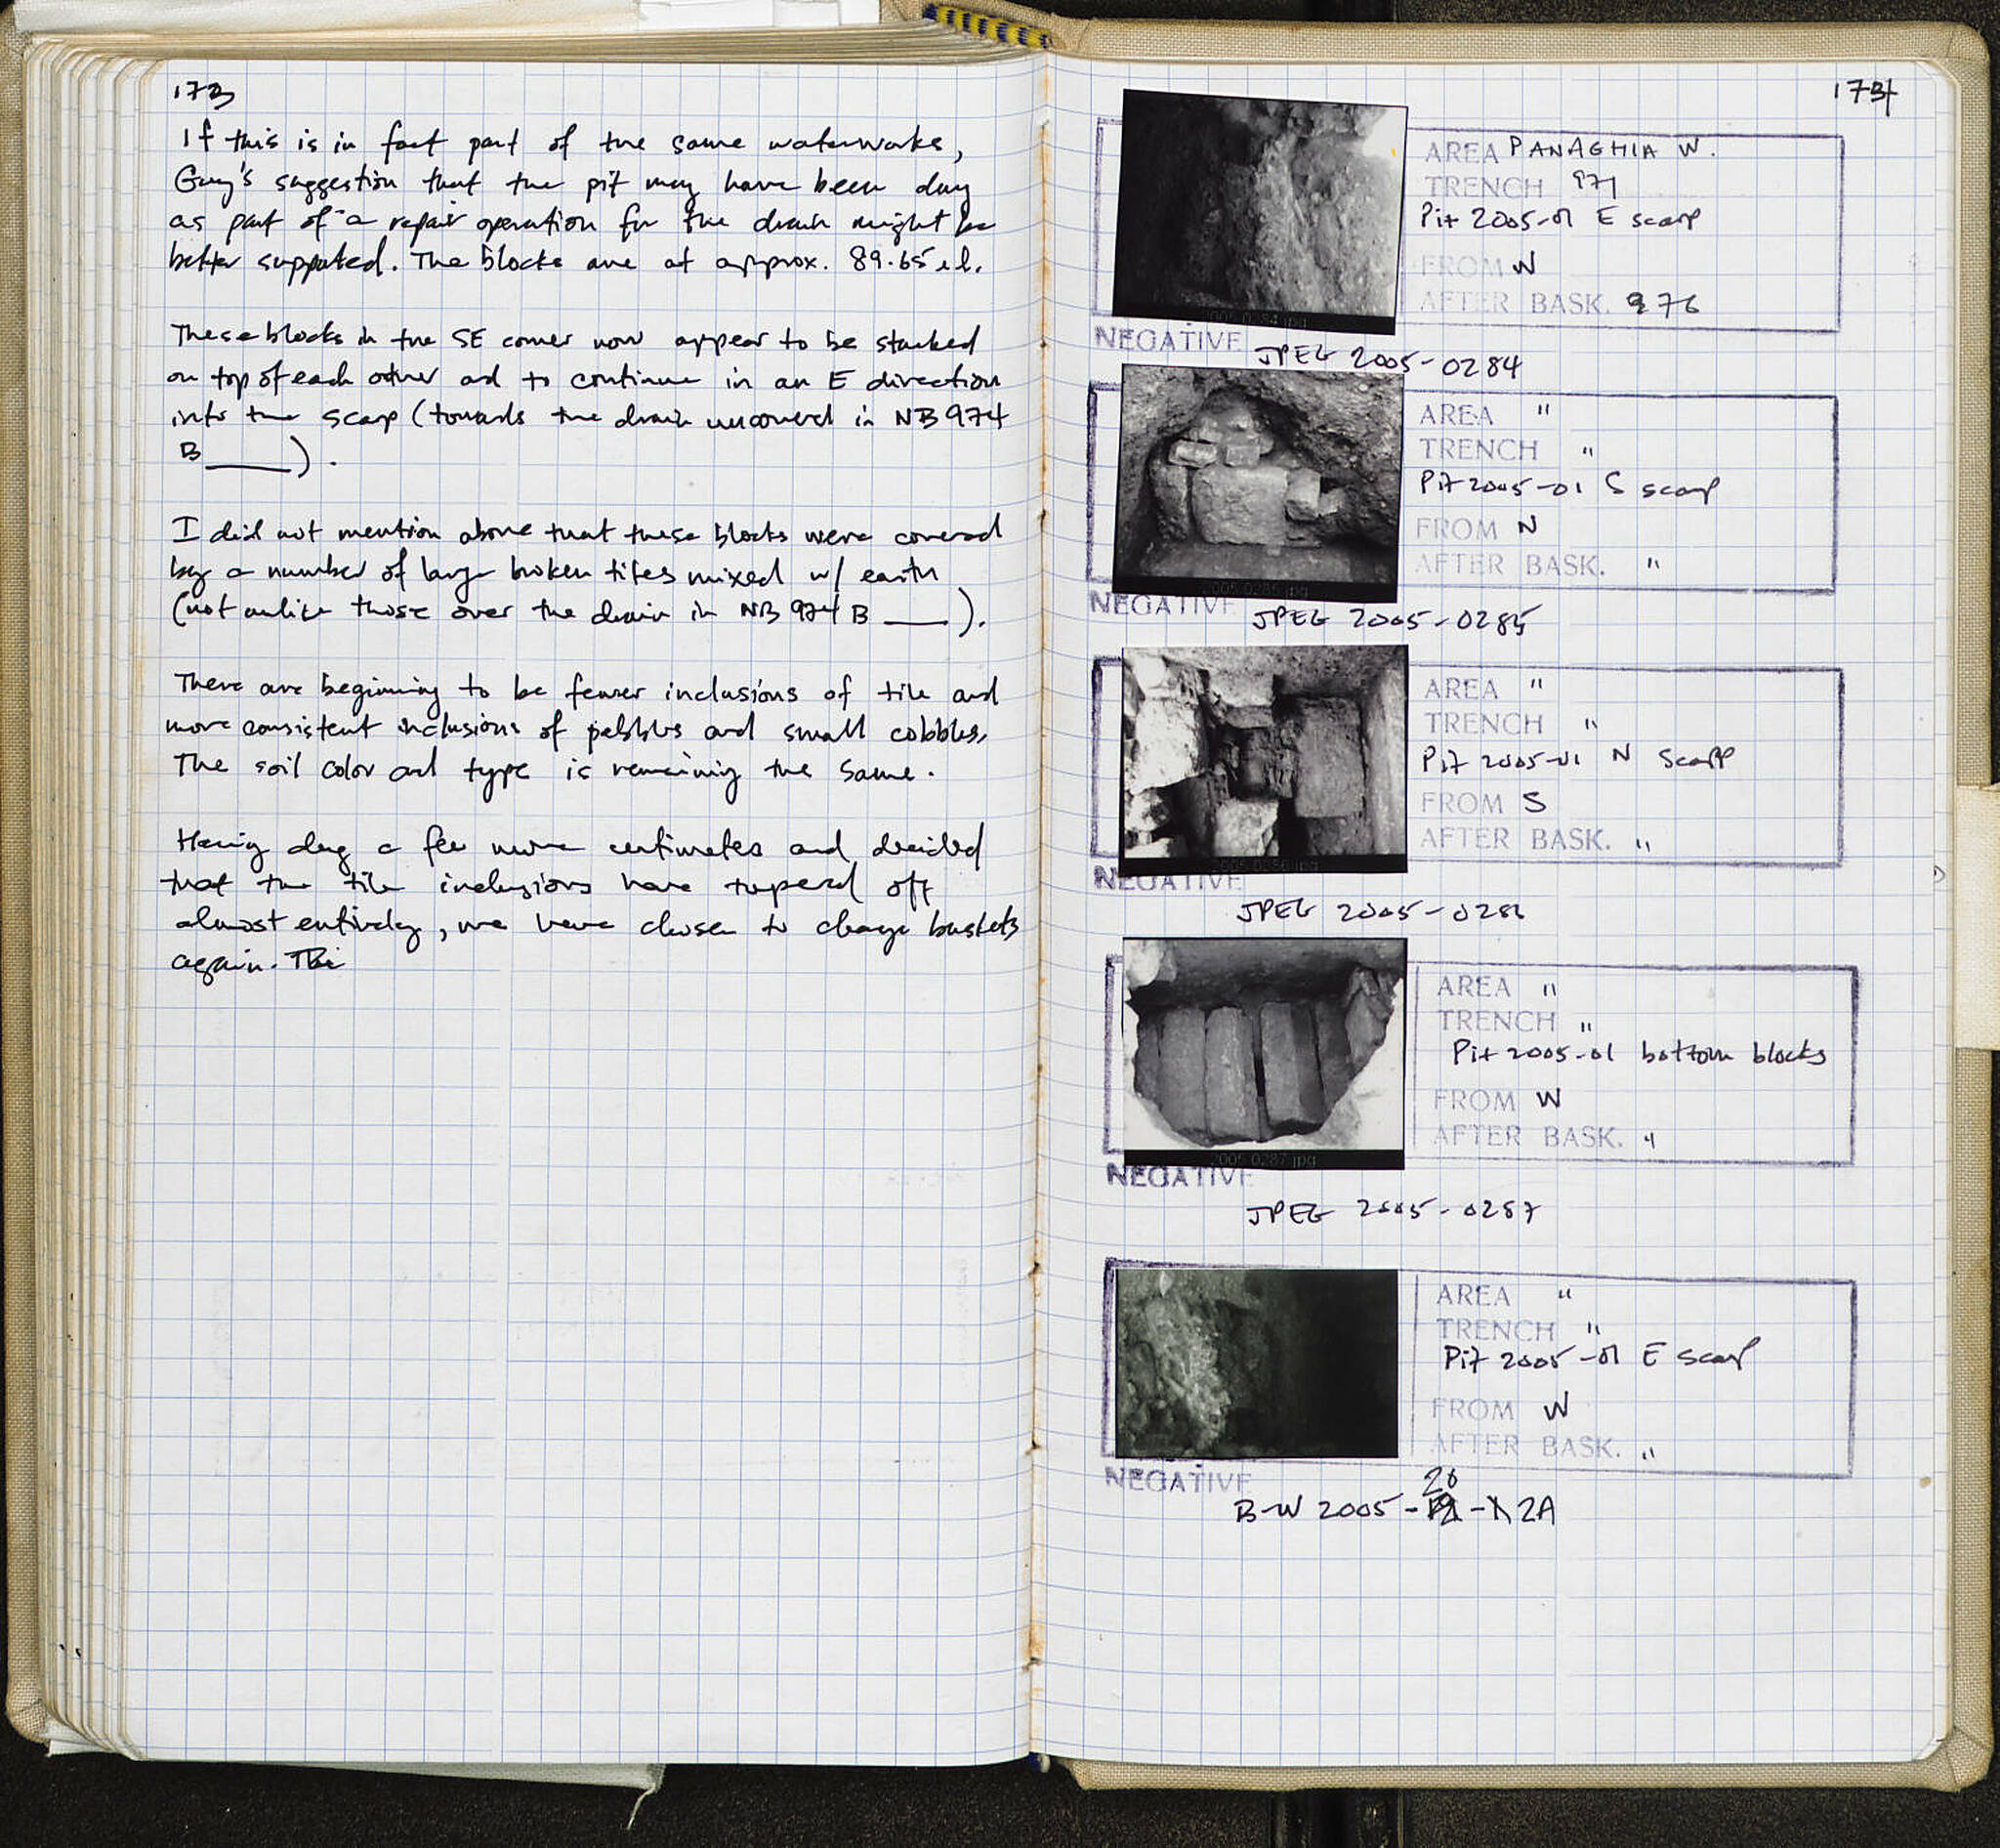 173
If this is in fact part of the same waterworks,
Guy's suggestion that the pit may have been dug
as part of a repair operation for the drain might be
better supported. The blocks are at approx. 89.65 el.
These blocks in the SE corner now appear to be stacked
on top of each other and to continue in an E direction
into the scarp (towards the drain uncovered in NB 974
B____).
I did not mention above that these blocks were covered
by a number of large broken tiles mixed w/ earth
(not unlike those over the drain in NB 974 B ____).
There are beginning to be fewer inclusions of tile and
more consistent inclusions of pebbles and small cobbles.
The soil color and type is remaining the same.
Having dug a few more centimeters and decided
that the tile inclusions have tapered off
almost entirely, we have chosen to change baskets
again. The
174
2005-0284.jpg
AREA PANAGHIA W.
TRENCH 971
Pit 2005-01 E scarp
FROM W
AFTER BASK. 976
NEGATIVE JPEG 2005-0284
2005-0285.jpg
AREA "
TRENCH "
Pit 2005-01 S scarp
FROM N
AFTER BASK. "
NEGATIVE JPEG 2005-0285
2005-0286.jpg
AREA "
TRENCH "
Pit 2005-01 N Scarp
FROM S
AFTER BASK. "
NEGATIVE
JPEG 2005-0286
2005-0287.jpg
AREA "
TRENCH "
Pit 2005-01 bottom blocks
FROM W
AFTER BASK. "
NEGATIVE
JPEG 2005-0287
AREA "
TRENCH "
Pit 2005-01 E scarp
FROM W
AFTER BASK. "
NEGATIVE
B-W 2005-20-2A